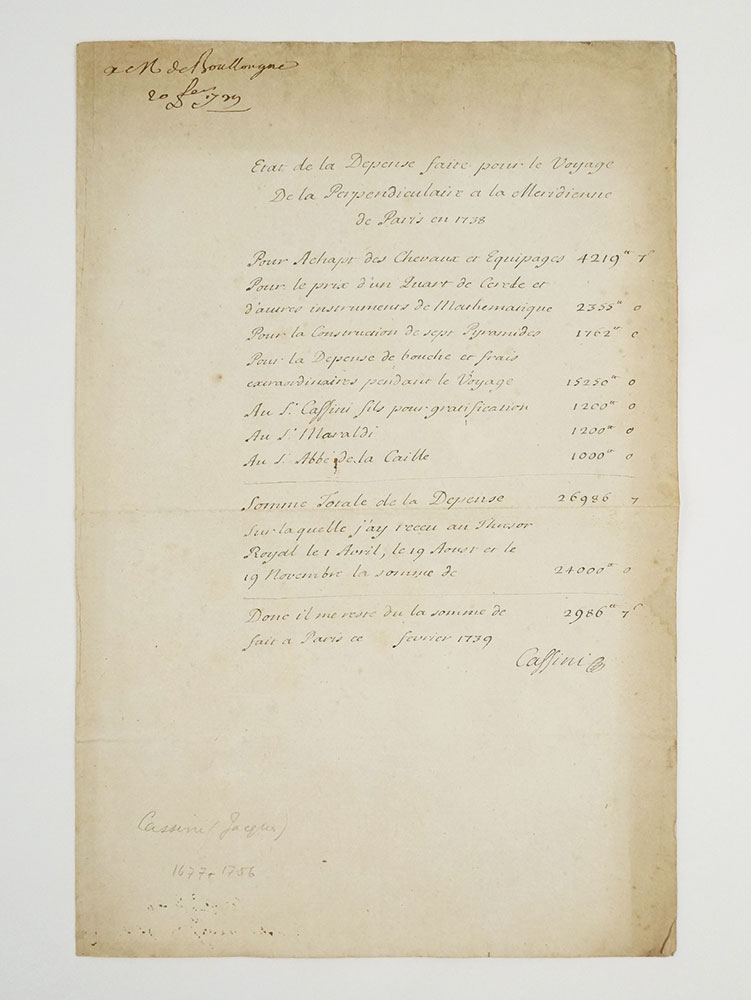 a M de Boullongne
20 fer 1739
Etat de la Depense faite pour le Voyage
De la Perpendiculaire a la Meridienne
de Paris en 1738
Pour Achapt des Chevaux et Equipages 4219ᵗᵗ 7ˢ
Pour le prix d'un Quart de Cercle et
d'autres instruments de Mathematique 2355ᵗᵗ 0
Pour la Construction de sept Pyramides 1762ᵗᵗ 0
Pour la Depense de bouche et frais
extraordinaires pendant le Voyage 15250ᵗᵗ 0
Au Sʳ Cassini fils pour gratification 1200ᵗᵗ 0
Au Sʳ Maraldi 1200ᵗᵗ 0
Au Sʳ Abbé de la Caille 1000ᵗᵗ 0
Somme Totale de la Depense 26986 7
Sur laquelle j'ay receu au Thresor
Royal le 1 Avril, le 19 Aoust et le
19 Novembre la somme de 24000ᵗᵗ 0
Donc il me reste du la somme de 2986ᵗᵗ 7ˢ
fait a Paris ce fevrier 1739
Cassini
Cassini (Jacques)
1677+1756